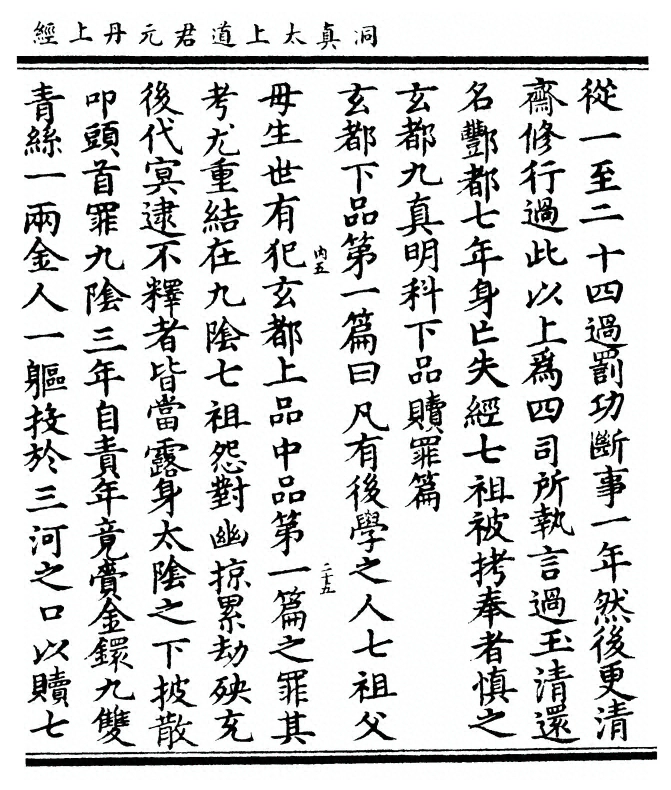 洞真太上道君元丹上經
從一至二十四過罰功斷事一年然後更清
齋修行過此以上爲四司所執言過玉清還
名酆都七年身亡失經七祖被拷奉者慎之
玄都九真明科下品贖罪篇
玄都下品第一篇曰凡有後學之人七祖父
母生世有犯玄都上品中品第一篇之罪其
内五
二十五
考尤重結在九陰七祖怨對幽掠累劫殃充
後代冥逮不釋者皆當露身太陰之下披散
叩頭首罪九陰三年自責年竟賫金鐶九雙
青絲一兩金人一軀投於三河之口以贖七